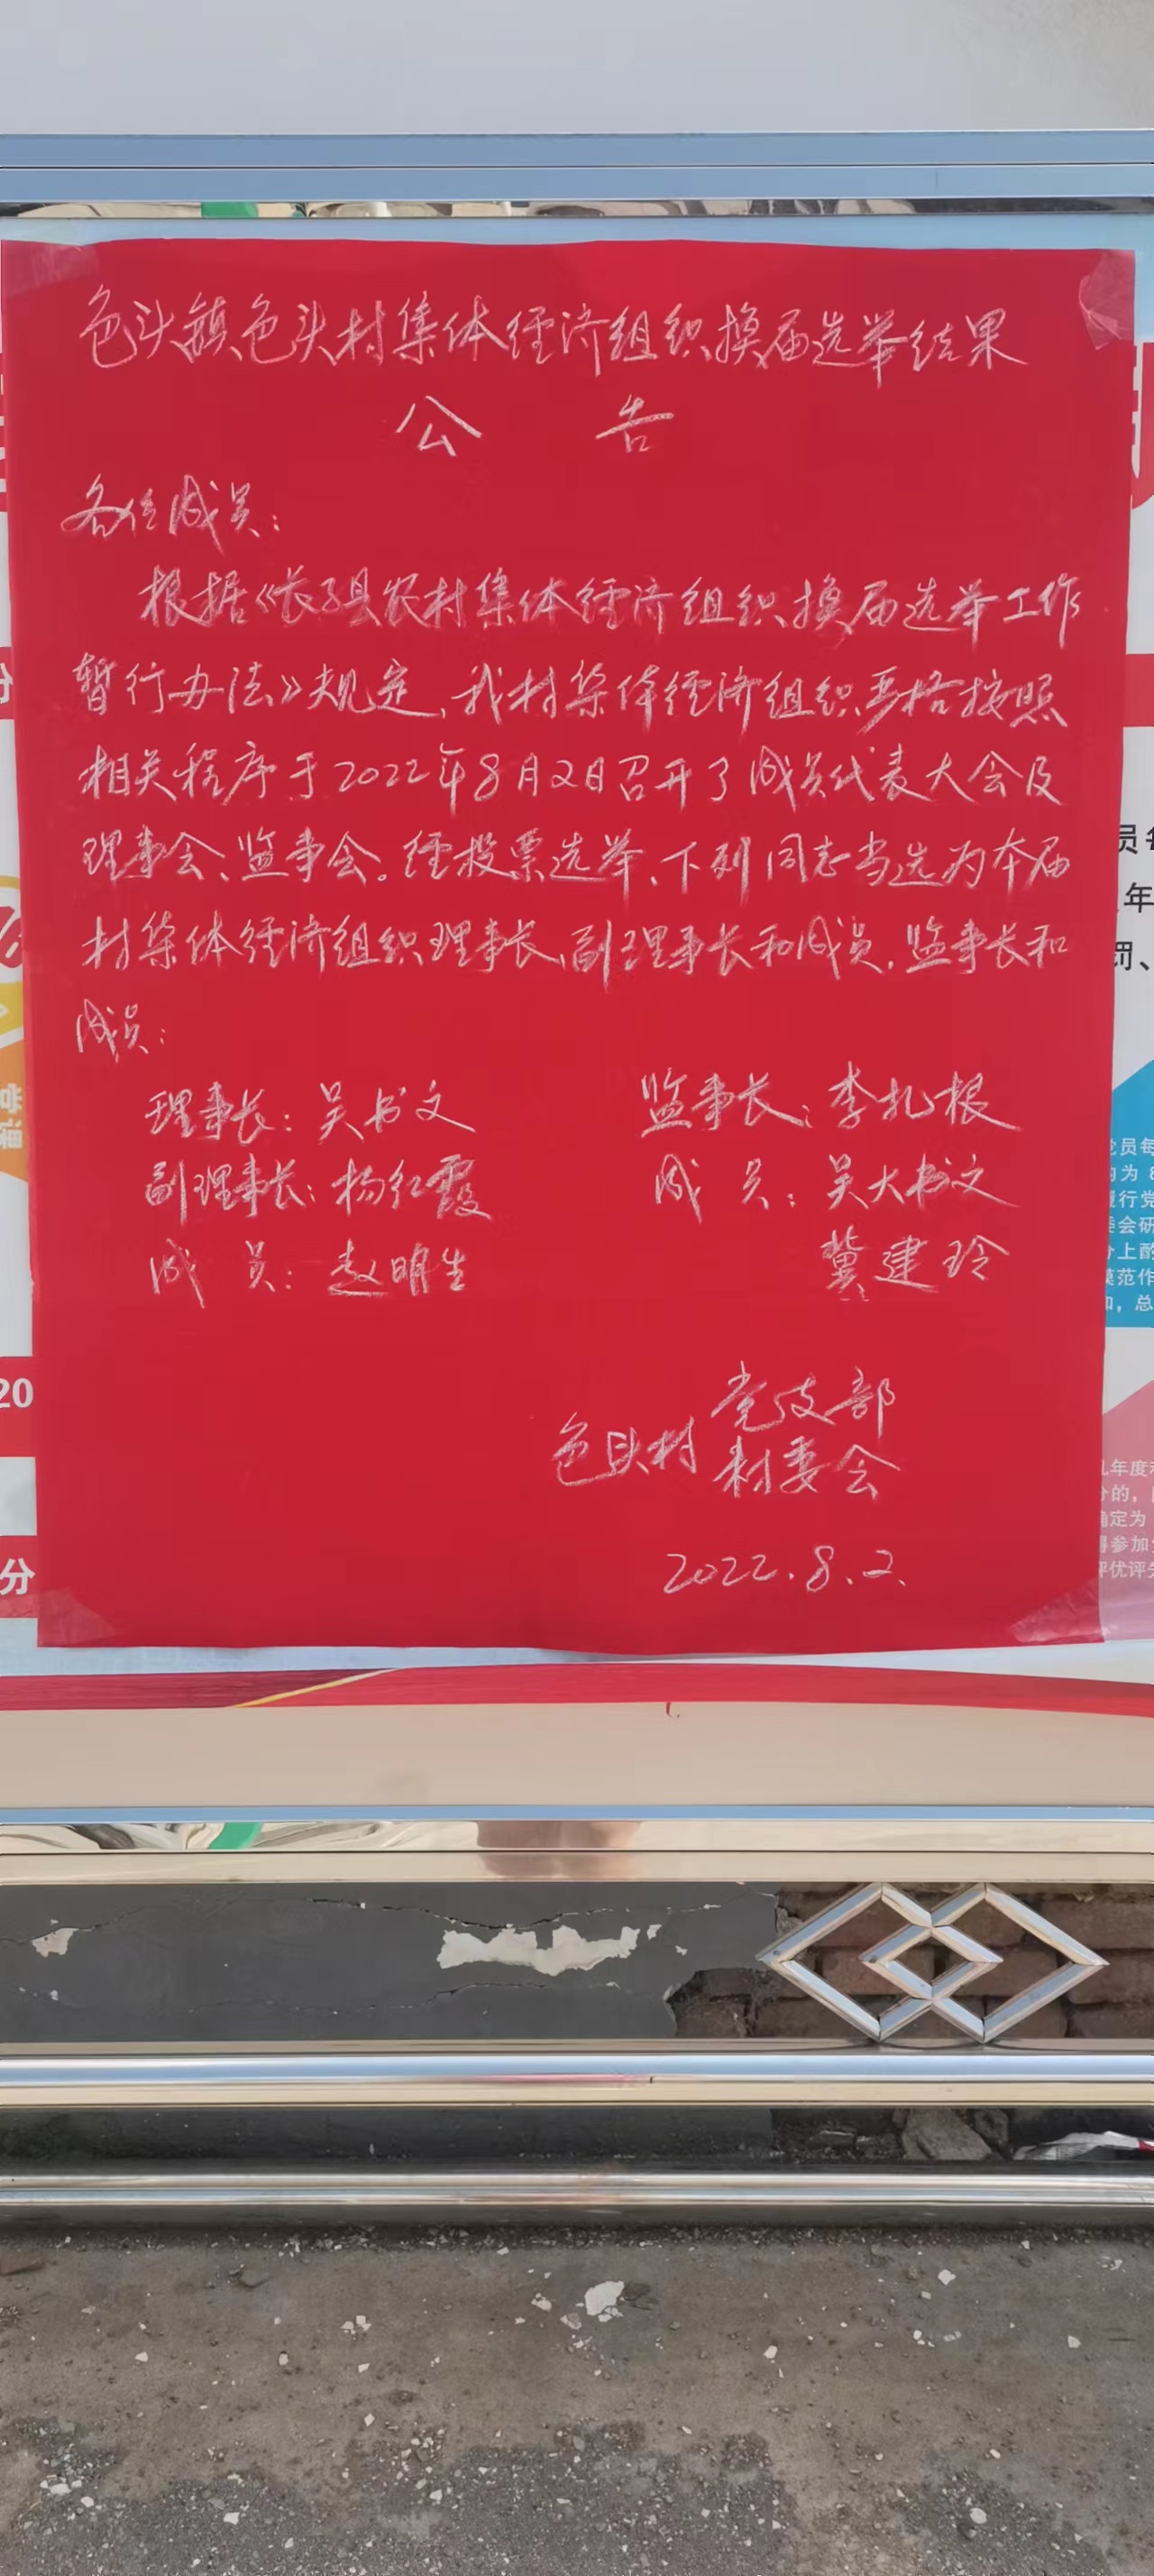 色头镇色头村集体经济组织换届选举结果
公 告
各位成员：
根据《长子县农村集体经济组织换届选举工作
暂行办法》规定，我村集体经济组织严格按照
相关程序于2022年8月2日召开了成员代表大会及
理事会、监事会。经投票选举，下列同志当选为本届
村集体经济组织理事长、副理事长和成员，监事长和
成员：
理事长：吴书文 监事长：李扎根
副理事长：杨红霞 成 员：吴大书文
成 员：赵明生 冀建玲
色头村 党支部
村委会
2022.8.2.
员每
年
罚、
20
分
党员每
均为 8
履行党
委会研
分上酌
模范作
和，总
年度
分的，
确定为
得参加
评优评先